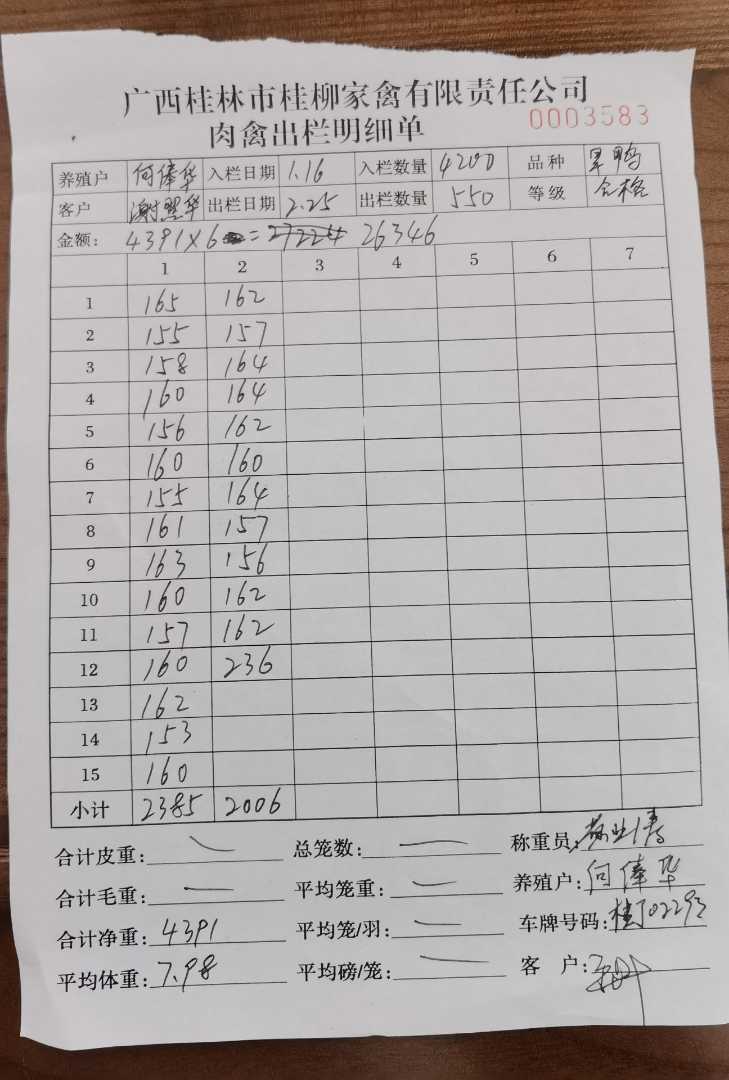 广西桂林市桂柳家禽有限责任公司
肉禽出栏明细单 0003583
养殖户 何俸华 入栏日期 1.16 入栏数量 4200 品种
客户 谢 华 出栏日期 2.25 出栏数量 550 等级 合格
金额: 4391×6 = 27224 26346
1 2 3 4 5 6 7
1 165 162
2 155 157
3 158 164
4 160 164
5 156 162
6 160 160
7 155 164
8 161 157
9 163 156
10 160 162
11 157 162
12 160 236
13 162
14 153
15 160
小计 2385 2006
合计皮重: 总笼数: 称重员:
合计毛重: 平均笼重: 养殖户: 何俸华
合计净重: 4391 平均笼/羽: 车牌号码: 02293
平均体重: 7.98 平均磅/笼: 客 户: